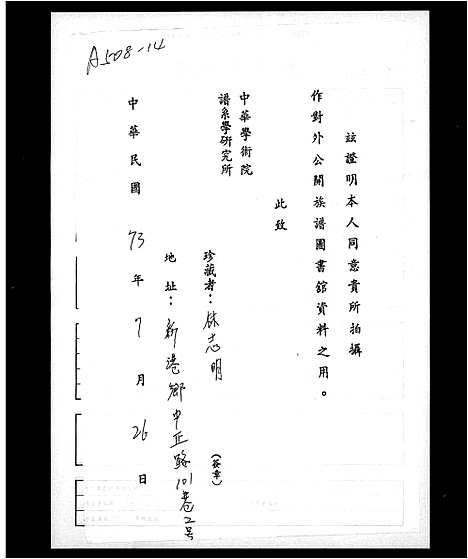 A508-14
茲證明本人同意貴所拍攝
作對外公開族譜圖書館資料之用。
此致
中華學術院
譜系學研究所
珍藏者：林志明
(簽章)
地址：新港鄉中正路101巷2号
中華民國73年7月26日